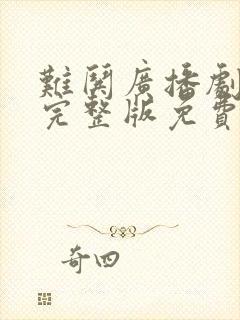 難鬨廣播劇
完整版免費
奇四